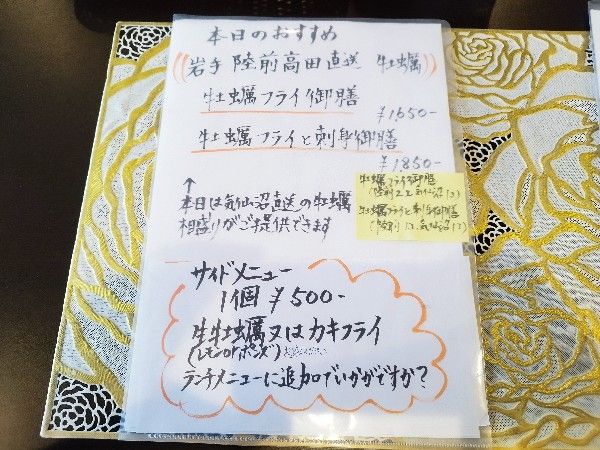 本日のおすすめ
岩手 陸前高田直送 牡蠣
牡蠣フライ御膳
¥1,650-
牡蠣フライと刺身御膳
¥1,850-
↑
本日は気仙沼直送の牡蠣
相盛りがご提供できます
牡蠣フライ御膳
牡蠣フライと刺身御膳
サイドメニュー
1個 ¥500-
生牡蠣又はカキフライ
(レモンorポンズ)
ランチメニューに追加でいかがですか?